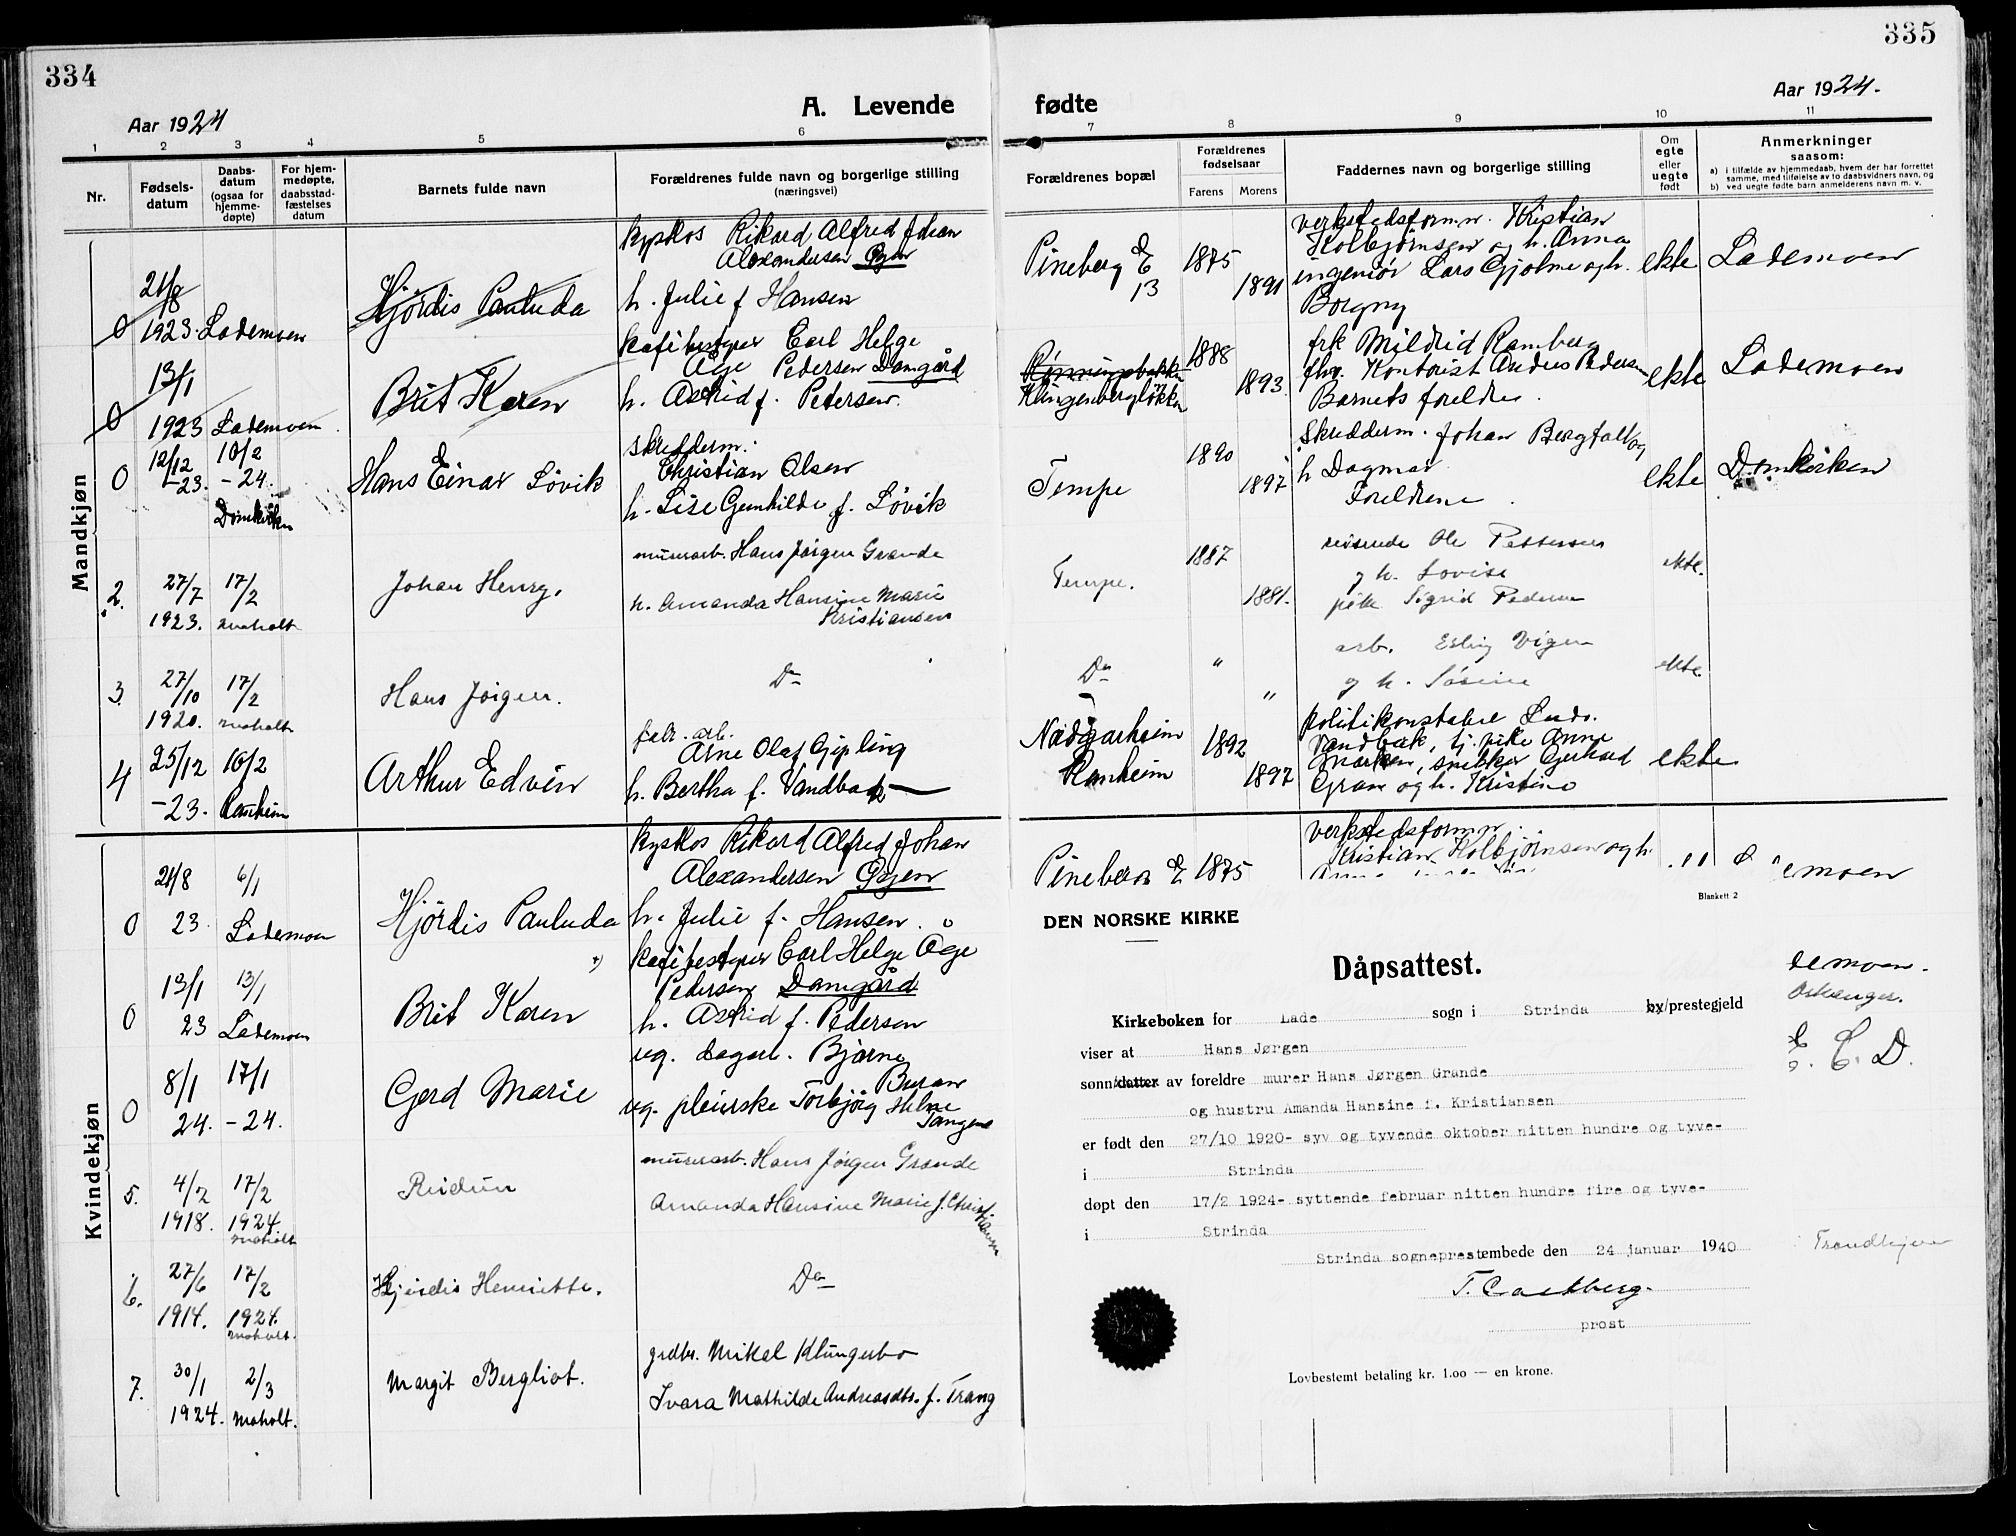 334
335
Aar 1924
A. Levende
fødte
Aar 1924.
1 2 3 4 5 6
7 8 9 10 11
Nr.
Fødsels-
datum
Daabs-
datum
(ogsaa for
hjemme-
døpte)
For hjem-
medøpte,
daabsstad-
fæstelses
datum
Barnets fulde navn
Forældrenes fulde navn og borgerlige stilling
(næringsvei)
Forældrenes bopæl
Forældrenes
fødselsaar
Farens
Morens
Faddernes navn og borgerlige stilling
Om
egte
eller
uegte
født
Anmerkninger
saasom:
a) i tilfælde av hjemmedaab, hvem der har forrettet
samme, med tilføielse av to daabsvidners navn, og
b) ved uegte fødte barn anmelderens navn m. v.
Mandkjøn
0
21/8
1923. Lademoen
Hjördis Pauluda
Rikard Alfred Johan
Alexandersen Gyen
h. Julie f Hansen
Pineberg E
13
1875
1891
verkstedsformn. Kristian
Kolbjørnsen og h. Anna
ingeniør Lars Gjølme og h.
Borgny
ekte
Lademoen
0
13/1
1923 Lademoen
Brit Karen
kafébestyrer Carl Helge
Åge Pedersen Damgård
h. Astrid f. Petersen
Klingenbergløkken
1888
1893
frk Mildrid Ramberg
Kontorist Anders Pedersen
Barnets foreldre.
ekte
Lademoen
0
12/12
-23.
10/2
-24.
Domkirken
Hans Einar Løvik
skredderm.
Christian Olsen
h. Lise Gunhilde f. Løvik
Tempe
1890
1897
Skredderm. Johan Bergfall og
h Dagmar
Foreldrene.
ekte
Domkirken
2.
27/7
1923.
17/2
moholt
Johan Henry.
murerarb. Hans Jørgen Grande
h. Amanda Hansine Marie
Kristiansen
Tempe.
1887
1881.
reisende Ole Pettersen
og h. Lovise
pike Sigrid Pedersen
ekte.
3.
27/10
1920.
17/2
moholt
Hans Jørgen.
Do
Do
"
"
arb. Esling Vigen
og h.
ekte.
4
25/12
-23.
10/2
Ranheim
Arthur Edvin
fabr. arb.
Arne Olaf Gipling
h. Bertha f. Vandbak
Ranheim
1892
1897
politikonstabel Ludv.
Vandbak, tj. pike Anna
snekker Gerhard
Gran og h. Kristine
ekte
Kvindekjøn
0
21/8
23
6/1
Lademoen
Hjördis Pauluda
Rikard Alfred Johan
Alexandersen Gyen
h. Julie f. Hansen.
Pineberg E 1875
verkstedsformn.
Kristian Kolbjørnsen og h.
emoen
0
13/1
23
13/1
Lademoen
Brit Karen
kafébestyrer Carl Helge Åge
Pedersen Damgård
h. Astrid f. Pedersen
demoen.
Orkanger.
0
8/1
24.
17/1
-24.
Gerd Marie
ug. dagarb. Bjarne
Buran
ug. pleierske Torbjørg Helne
Tangen
5.
4/2
1918.
17/2
1924.
moholt
Reidun
murerarb. Hans Jørgen Grande
Amanda Hansine Marie f. Christiansen
6.
27/6
1914.
17/2
1924.
moholt.
Hjördis Henriette.
Do
7.
30/1
1924.
2/3
Moholt.
Margit Bergliot.
grdbr. Mikal Klungerbo
Ivara Mathilde Andreasdtr. f. Trang
Trondhjem
Blankett 2
DEN NORSKE KIRKE
Dåpsattest.
Kirkeboken for Lade sogn i Strinda by/prestegjeld
viser at Hans Jørgen
sønn/datter av foreldre murer Hans Jørgen Grande
og hustru Amanda Hansine f. Kristiansen
er født den 27/10 1920- syv og tyvende oktober nitten hundre og tyve-
i Strinda
døpt den 17/2 1924- syttende februar nitten hundre fire og tyve-
i Strinda
Strinda sogneprestembede den 24 januar 1940
T. Castberg.
prost
Lovbestemt betaling kr. 1.00 — en krone.